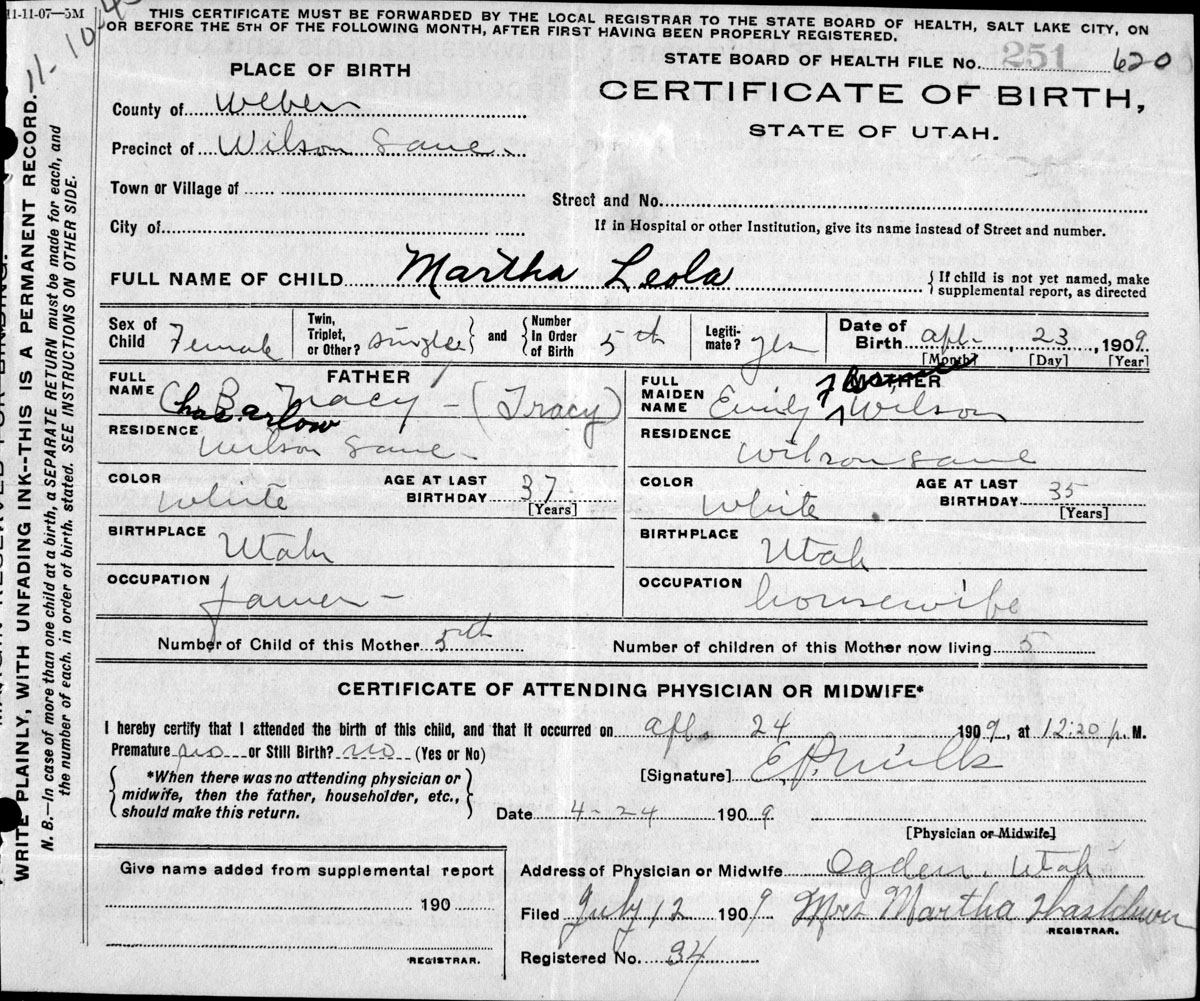 11-11-07—5M
THIS CERTIFICATE MUST BE FORWARDED BY THE LOCAL REGISTRAR TO THE STATE BOARD OF HEALTH, SALT LAKE CITY, ON
OR BEFORE THE 5TH OF THE FOLLOWING MONTH, AFTER FIRST HAVING BEEN PROPERLY REGISTERED.
PLACE OF BIRTH
STATE BOARD OF HEALTH FILE NO. 251 620
CERTIFICATE OF BIRTH,
STATE OF UTAH.
County of Weber
Precinct of Wilson Lane
Town or Village of
Street and No.
City of
If in Hospital or other Institution, give its name instead of Street and number.
FULL NAME OF CHILD Martha Leola
{If child is not yet named, make supplemental report, as directed
Sex of Child Female
Twin, Triplet, or Other? single} and {Number In Order of Birth 5th
Legitimate? yes
Date of Birth Apl. 23, 1909
[Month] [Day] [Year]
FATHER
FULL NAME Chas B. Tracy - (Tracy)
Barlow
RESIDENCE Wilson Lane
COLOR White
AGE AT LAST BIRTHDAY 37
[Years]
BIRTHPLACE Utah
OCCUPATION farmer -
MOTHER
FULL MAIDEN NAME Emily Wilson
RESIDENCE Wilson Lane
COLOR White
AGE AT LAST BIRTHDAY 35
[Years]
BIRTHPLACE Utah
OCCUPATION housewife
Number of Child of this Mother 5th
Number of children of this Mother now living 5
CERTIFICATE OF ATTENDING PHYSICIAN OR MIDWIFE*
I hereby certify that I attended the birth of this child, and that it occurred on Apl. 24 1909, at 12:30 p. M.
Premature no or Still Birth? no (Yes or No)
{*When there was no attending physician or midwife, then the father, householder, etc., should make this return.}
[Signature] E.P. Mills
Date 4-24 1909
[Physician or Midwife]
Give name added from supplemental report
190
REGISTRAR.
Address of Physician or Midwife Ogden, Utah
Filed July 12 1909 Mrs Martha
REGISTRAR.
Registered No. 34
WRITE PLAINLY, WITH UNFADING INK--THIS IS A PERMANENT RECORD.
N. B.—In case of more than one child at a birth, a SEPARATE RETURN must be made for each, and
the number of each, in order of birth, stated. SEE INSTRUCTIONS ON OTHER SIDE.